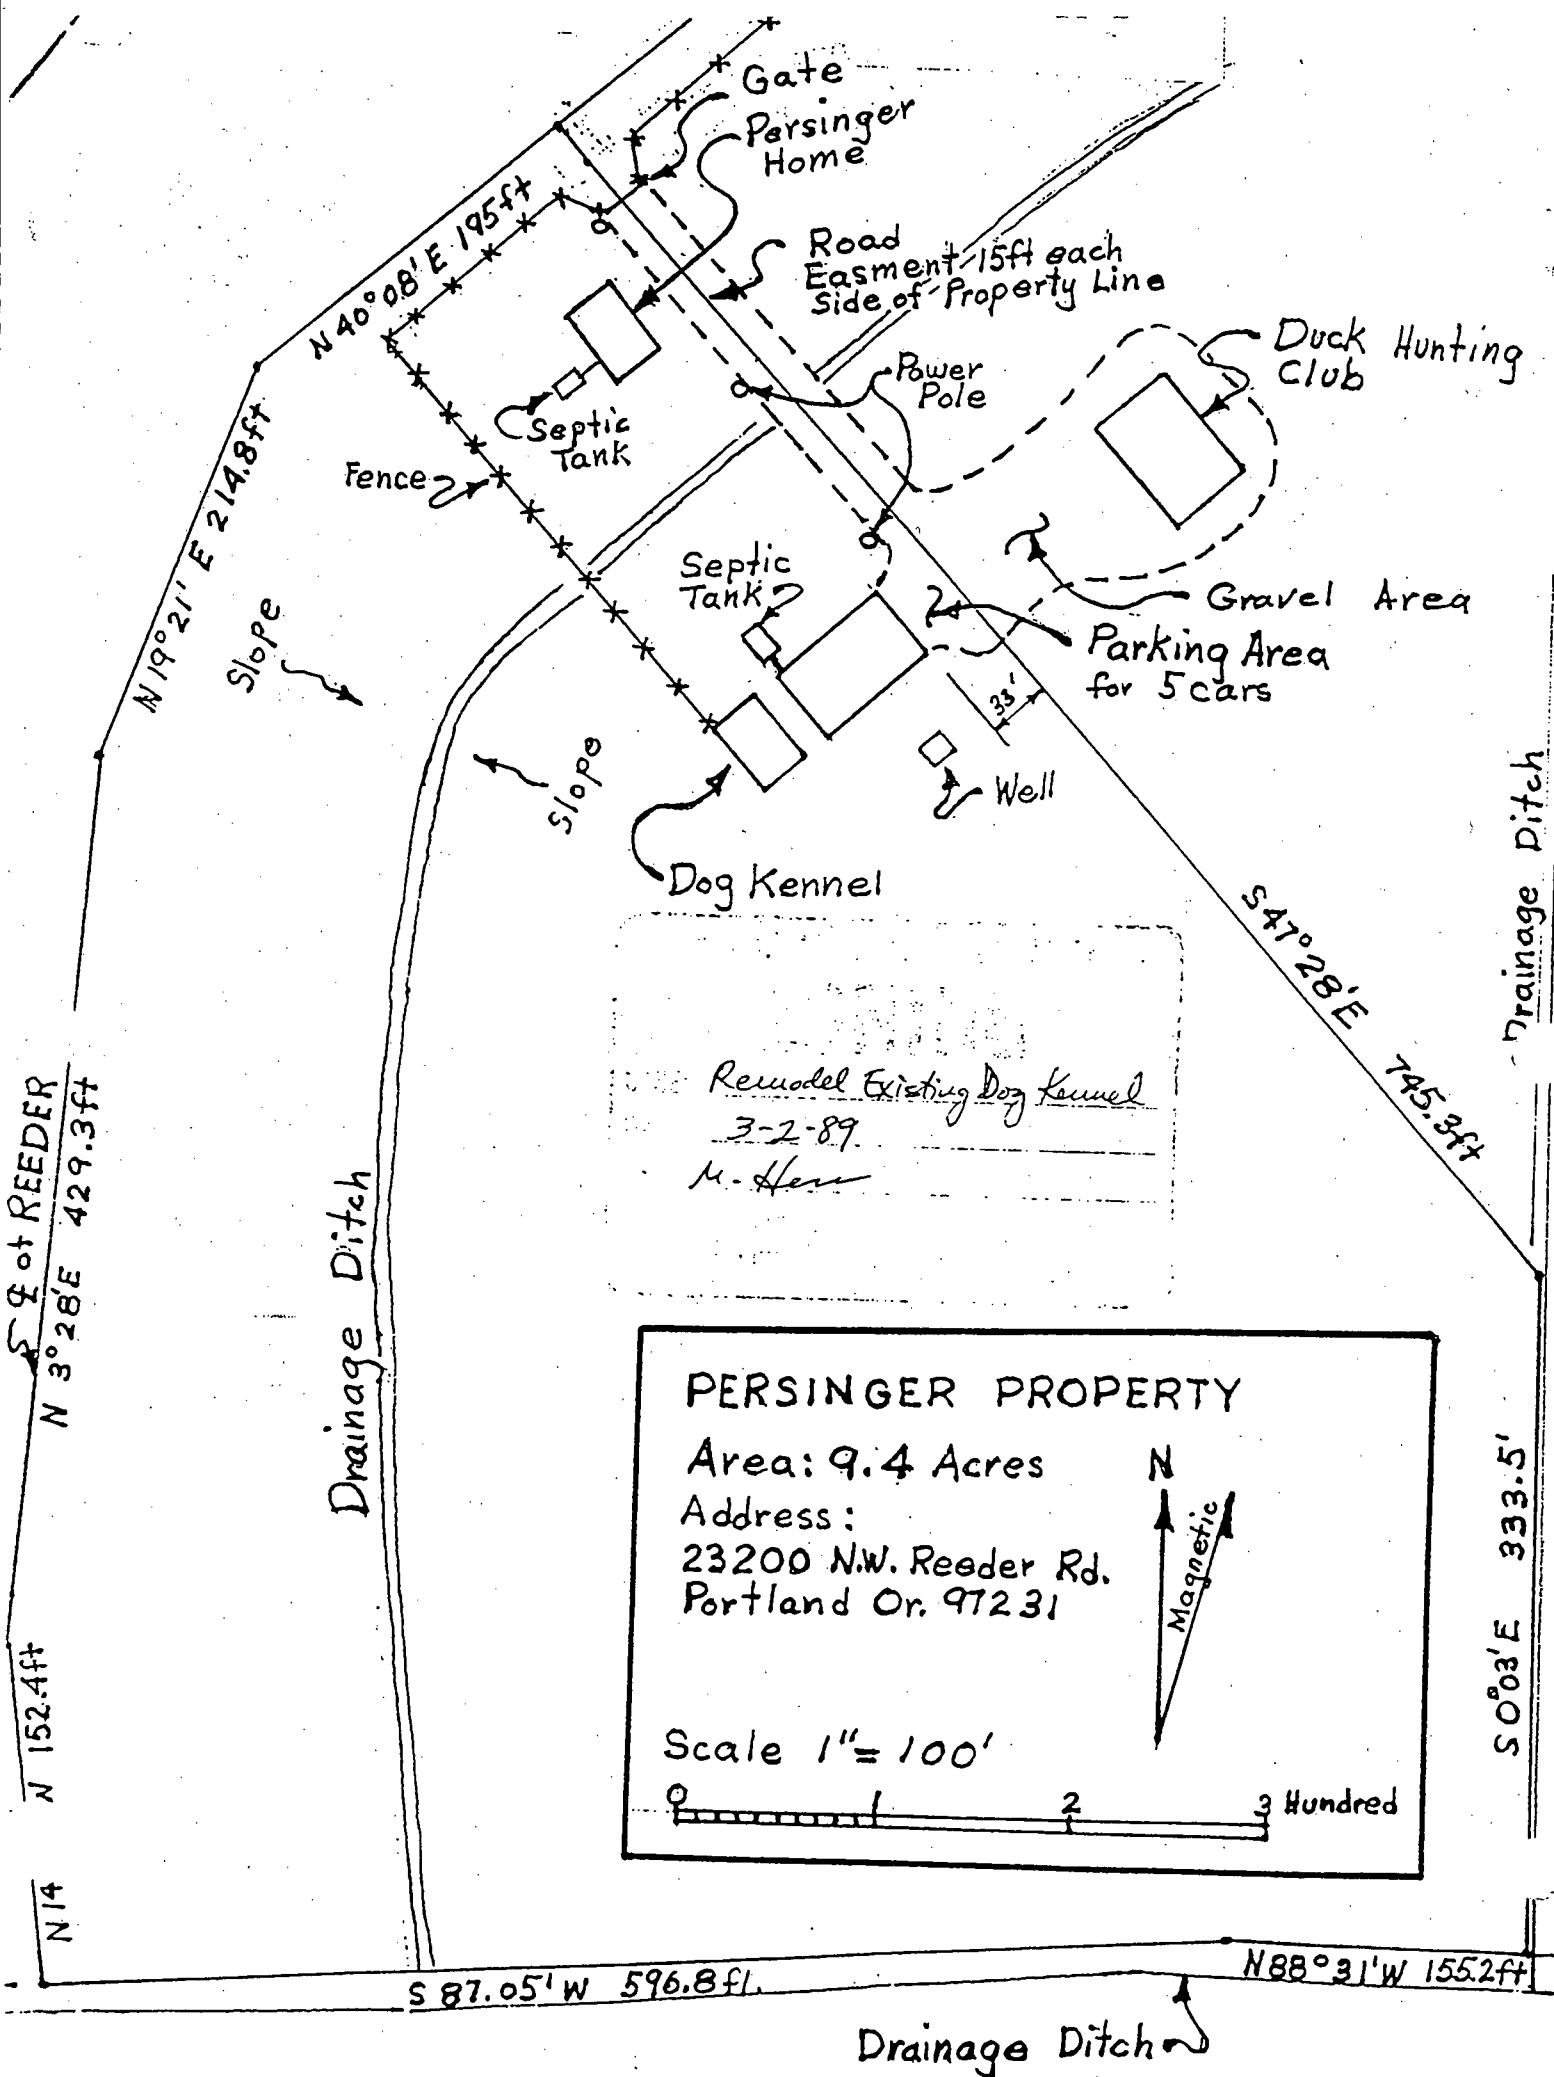 Gate
Persinger
Home
Road
Easment-15ft each
Side of Property Line
N 40°08'E 195ft
Duck Hunting
Club
Power
Pole
Septic
Tank
Fence
N 19°21' E 214.8ft
Slope
Septic
Tank
Gravel Area
Parking Area
for 5 cars
33'
Slope
Well
Dog Kennel
Drainage Ditch
S 47°28'E 745.3ft
Remodel Existing Dog Kennel
3-2-89
M.
℄ of REEDER
N 3°28'E 429.3ft
Drainage Ditch
PERSINGER PROPERTY
Area: 9.4 Acres
Address:
23200 N.W. Reeder Rd.
Portland Or. 97231
N
Magnetic
Scale 1"= 100'
0 1 2 3 Hundred
S 0°03'E 333.5'
N 152.4ft
N 14
S 87.05'W 596.8ft.
N 88°31'W 155.2ft
Drainage Ditch